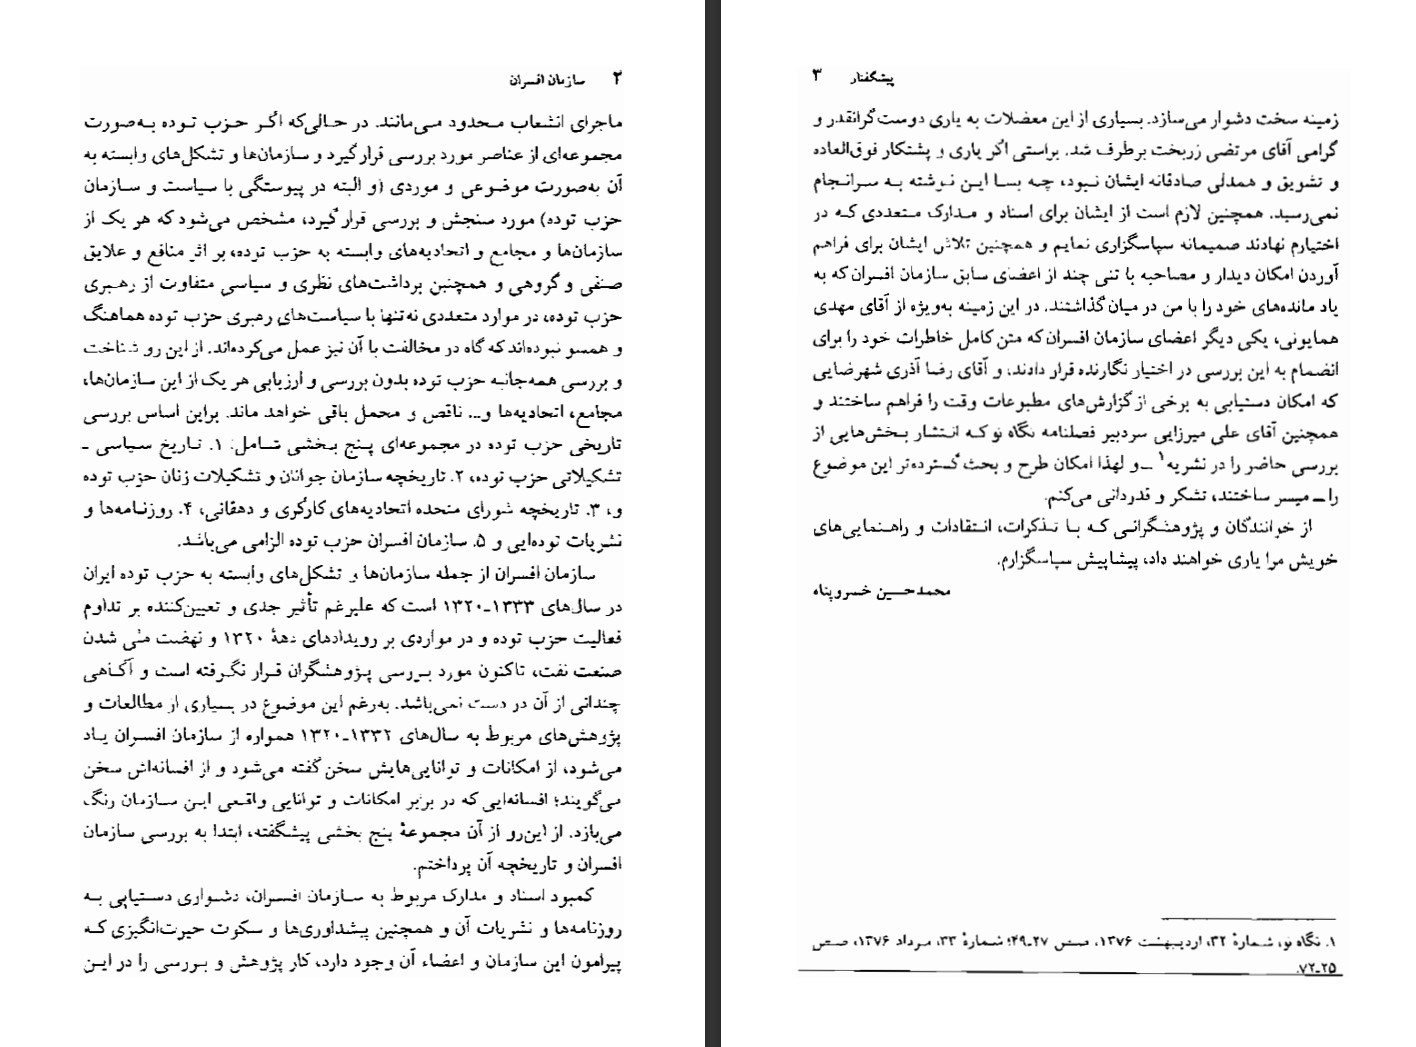 ۲ سازمان افسران
ماجرای انشعاب محدود می‌مانند. در حالی‌که اگر حزب توده به‌صورت
مجموعه‌ای از عناصر مورد بررسی قرار گیرد و سازمان‌ها و تشکل‌های وابسته به
آن به‌صورت موضوعی و موردی (و البته در پیوستگی با سیاست و سازمان
حزب توده) مورد سنجش و بررسی قرار گیرد، مشخص می‌شود که هر یک از
سازمان‌ها و مجامع و اتحادیه‌های وابسته به حزب توده، بر اثر منافع و علایق
صنفی و گروهی و همچنین برداشت‌های نظری و سیاسی متفاوت از رهبری
حزب توده، در موارد متعددی نه‌تنها با سیاست‌های رهبری حزب توده هماهنگ
و همسو نبوده‌اند که گاه در مخالفت با آن نیز عمل می‌کرده‌اند. از این رو شناخت
و بررسی همه‌جانبه حزب توده بدون بررسی و ارزیابی هر یک از این سازمان‌ها،
مجامع، اتحادیه‌ها و... ناقص و مجمل باقی خواهد ماند. براین اساس بررسی
تاریخی حزب توده در مجموعه‌ای پنج بخشی شامل: ۱. تاریخ سیاسی ـ
تشکیلاتی حزب توده، ۲. تاریخچه سازمان جوانان و تشکیلات زنان حزب توده
و، ۳. تاریخچه شورای متحده اتحادیه‌های کارگری و دهقانی، ۴. روزنامه‌ها و
نشریات توده‌ایی و ۵. سازمان افسران حزب توده الزامی می‌باشد.
سازمان افسران از جمله سازمان‌ها و تشکل‌های وابسته به حزب توده ایران
در سال‌های ۱۳۳۳ـ۱۳۲۰ است که علیرغم تأثیر جدی و تعیین‌کننده بر تداوم
فعالیت حزب توده و در مواردی بر رویدادهای دههٔ ۱۳۲۰ و نهضت ملی شدن
صنعت نفت، تاکنون مورد بررسی پژوهشگران قرار نگرفته است و آگاهی
چندانی از آن در دست نمی‌باشد. به‌رغم این موضوع در بسیاری از مطالعات و
پژوهش‌های مربوط به سال‌های ۱۳۳۲ـ۱۳۲۰ همواره از سازمان افسران یاد
می‌شود، از امکانات و توانایی‌هایش سخن گفته می‌شود و از افسانه‌اش سخن
می‌گویند؛ افسانه‌ایی که در برابر امکانات و توانایی واقعی این سازمان رنگ
می‌بازد. از این‌رو از آن مجموعهٔ پنج بخشی پیشگفته، ابتدا به بررسی سازمان
افسران و تاریخچه آن پرداختم.
کمبود اسناد و مدارک مربوط به سازمان افسران، دشواری دستیابی به
روزنامه‌ها و نشریات آن و همچنین پیشداوری‌ها و سکوت حیرت‌انگیزی که
پیرامون این سازمان و اعضاء آن وجود دارد، کار پژوهش و بررسی را در این
پیشگفتار ۳
زمینه سخت دشوار می‌سازد. بسیاری از این معضلات به یاری دوست گرانقدر و
گرامی آقای مرتضی زربخت برطرف شد. براستی اگر یاری و پشتکار فوق‌العاده
و تشویق و همدلی صادقانه ایشان نبود، چه بسا این نوشته به سرانجام
نمی‌رسید. همچنین لازم است از ایشان برای اسناد و مدارک متعددی که در
اختیارم نهادند صمیمانه سپاسگزاری نمایم و همچنین تلاش ایشان برای فراهم
آوردن امکان دیدار و مصاحبه با تنی چند از اعضای سابق سازمان افسران که به
یاد مانده‌های خود را با من در میان گذاشتند. در این زمینه به‌ویژه از آقای مهدی
همایونی، یکی دیگر اعضای سازمان افسران که متن کامل خاطرات خود را برای
انضمام به این بررسی در اختیار نگارنده قرار دادند، و آقای رضا آذری شهرضایی
که امکان دستیابی به برخی از گزارش‌های مطبوعات وقت را فراهم ساختند و
همچنین آقای علی میرزایی سردبیر فصلنامه نگاه نو که انتشار بخش‌هایی از
بررسی حاضر را در نشریه۱ ـ و لهذا امکان طرح و بحث گسترده‌تر این موضوع
را ـ میسر ساختند، تشکر و قدردانی می‌کنم.
از خوانندگان و پژوهشگرانی که با تذکرات، انتقادات و راهنمایی‌های
خویش مرا یاری خواهند داد، پیشاپیش سپاسگزارم.
محمدحسین خسروپناه
۱. نگاه نو، شمارهٔ ۳۲، اردیبهشت ۱۳۷۶، صص ۲۷ـ۴۹؛ شمارهٔ ۳۳، مرداد ۱۳۷۶، صص
۲۵ـ۷۲.